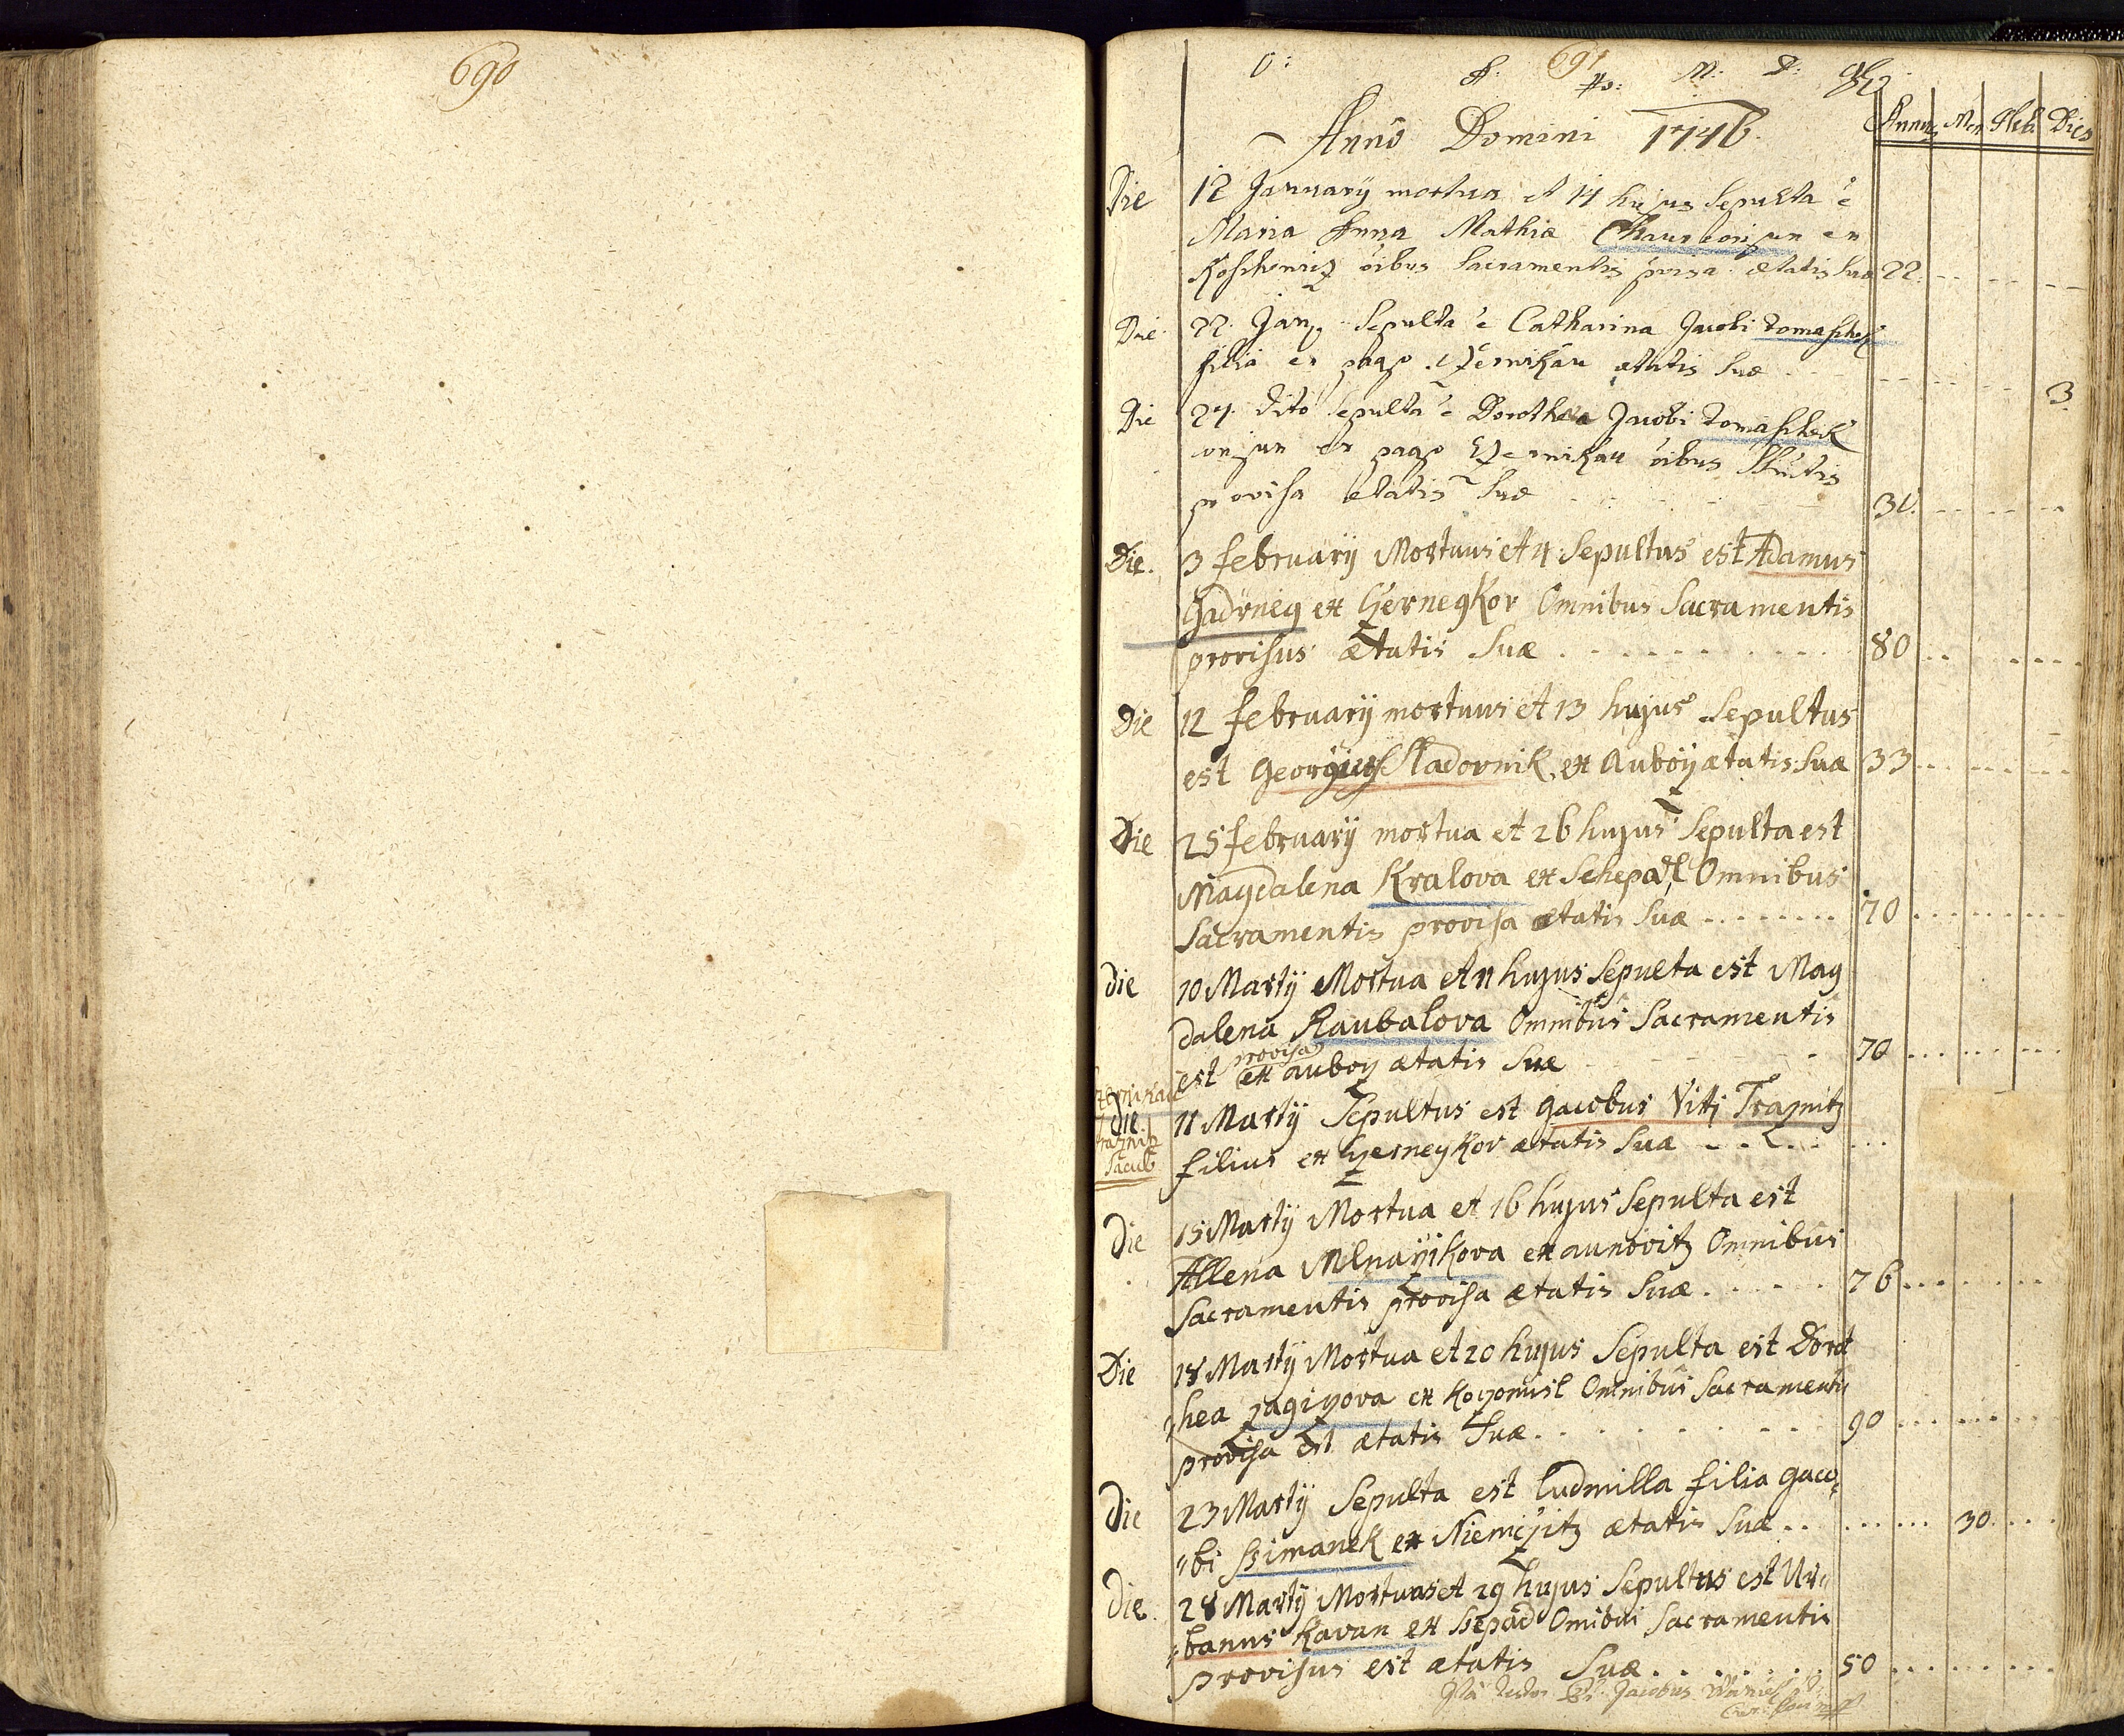 690
691
O: A: M: D: G:
Anno Domini 1746.
Annus Men Heb Dies
Die 12 January mortua et 14 hujus Sepulta ē
Maria Anna Mathiæ conjun ex
oibus Sacramentis ætatis Suæ 22.
Die 22. Jan Sepulta ē Catharina Jacobi tomaschek
filia ex pago ætatis Suæ 3.
Die 24. dito Sepulta ē Dorothea Jacobi tomaschek
conjun ex pago oibus
provisa ætatis Suæ
Die. 3 february Mortuus et 4 Sepultus est Adamus
ex Omnibus Sacramentis
provisus ætatis Suæ 80
Die 12 february mortuus et 13 hujus Sepultus
est Georgius ex Auboy ætatis Suæ 33
Die 25 february mortua et 26 hujus Sepulta est
Magdalena Kralova ex Omnibus
Sacramentis provisa ætatis Suæ 70
Die 10 Martij Mortua et 11 hujus Sepulta est Mag
dalena Raubalova Omnibus Sacramentis
provisa
est ex auboy ætatis Suæ 70
Die 11 Martij Sepultus est Jacobus Viti Trajnitz
filius ex ætatis Suæ
Die 15 Martij Mortua et 16 hujus Sepulta est
Allena ex aunovitz Omnibus
Sacramentis provisa ætatis Suæ 76
Die 18 Martij Mortua et 20 hujus Sepulta est Dorot
hea ex Omnibus Sacramentis
provisa est ætatis Suæ 90
Die 23 Martij Sepulta est Ludmilla filia Jaco
"bi ssimanek ex Niemcjitz ætatis Suæ 30
Die 28 Martij Mortuus et 29 hujus Sepultus est Ur"
"banus Kavan ex ssepad Omibus Sacramentis
provisus est ætatis Suæ 50
Jacobus